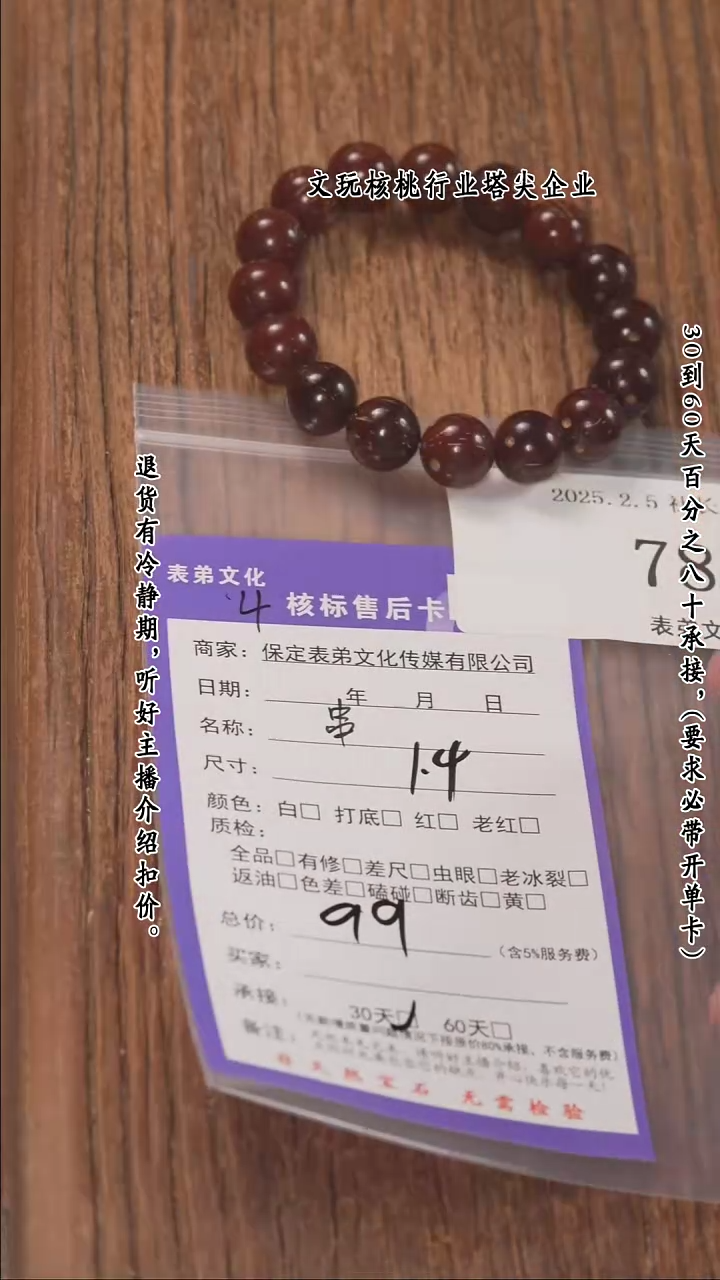 文玩核桃行业塔尖企业
30到60天百分之八十承接，（要求必带开单卡）
退货有冷静期，听好主播介绍扣价。
2025.2.5 社长
78
表弟文
表弟文化
4 核标售后卡
商家：保定表弟文化传媒有限公司
日期： 年 月 日
名称： 串
尺寸： 1.4
颜色：白□ 打底□ 红□ 老红□
质检：
全品□有修□差尺□虫眼□老冰裂□
返油□色差□磕碰□断齿□黄□
总价： 99 （含5%服务费）
买家：
承接： 30天□ 60天□
备注：
非天然宝石 无需检验